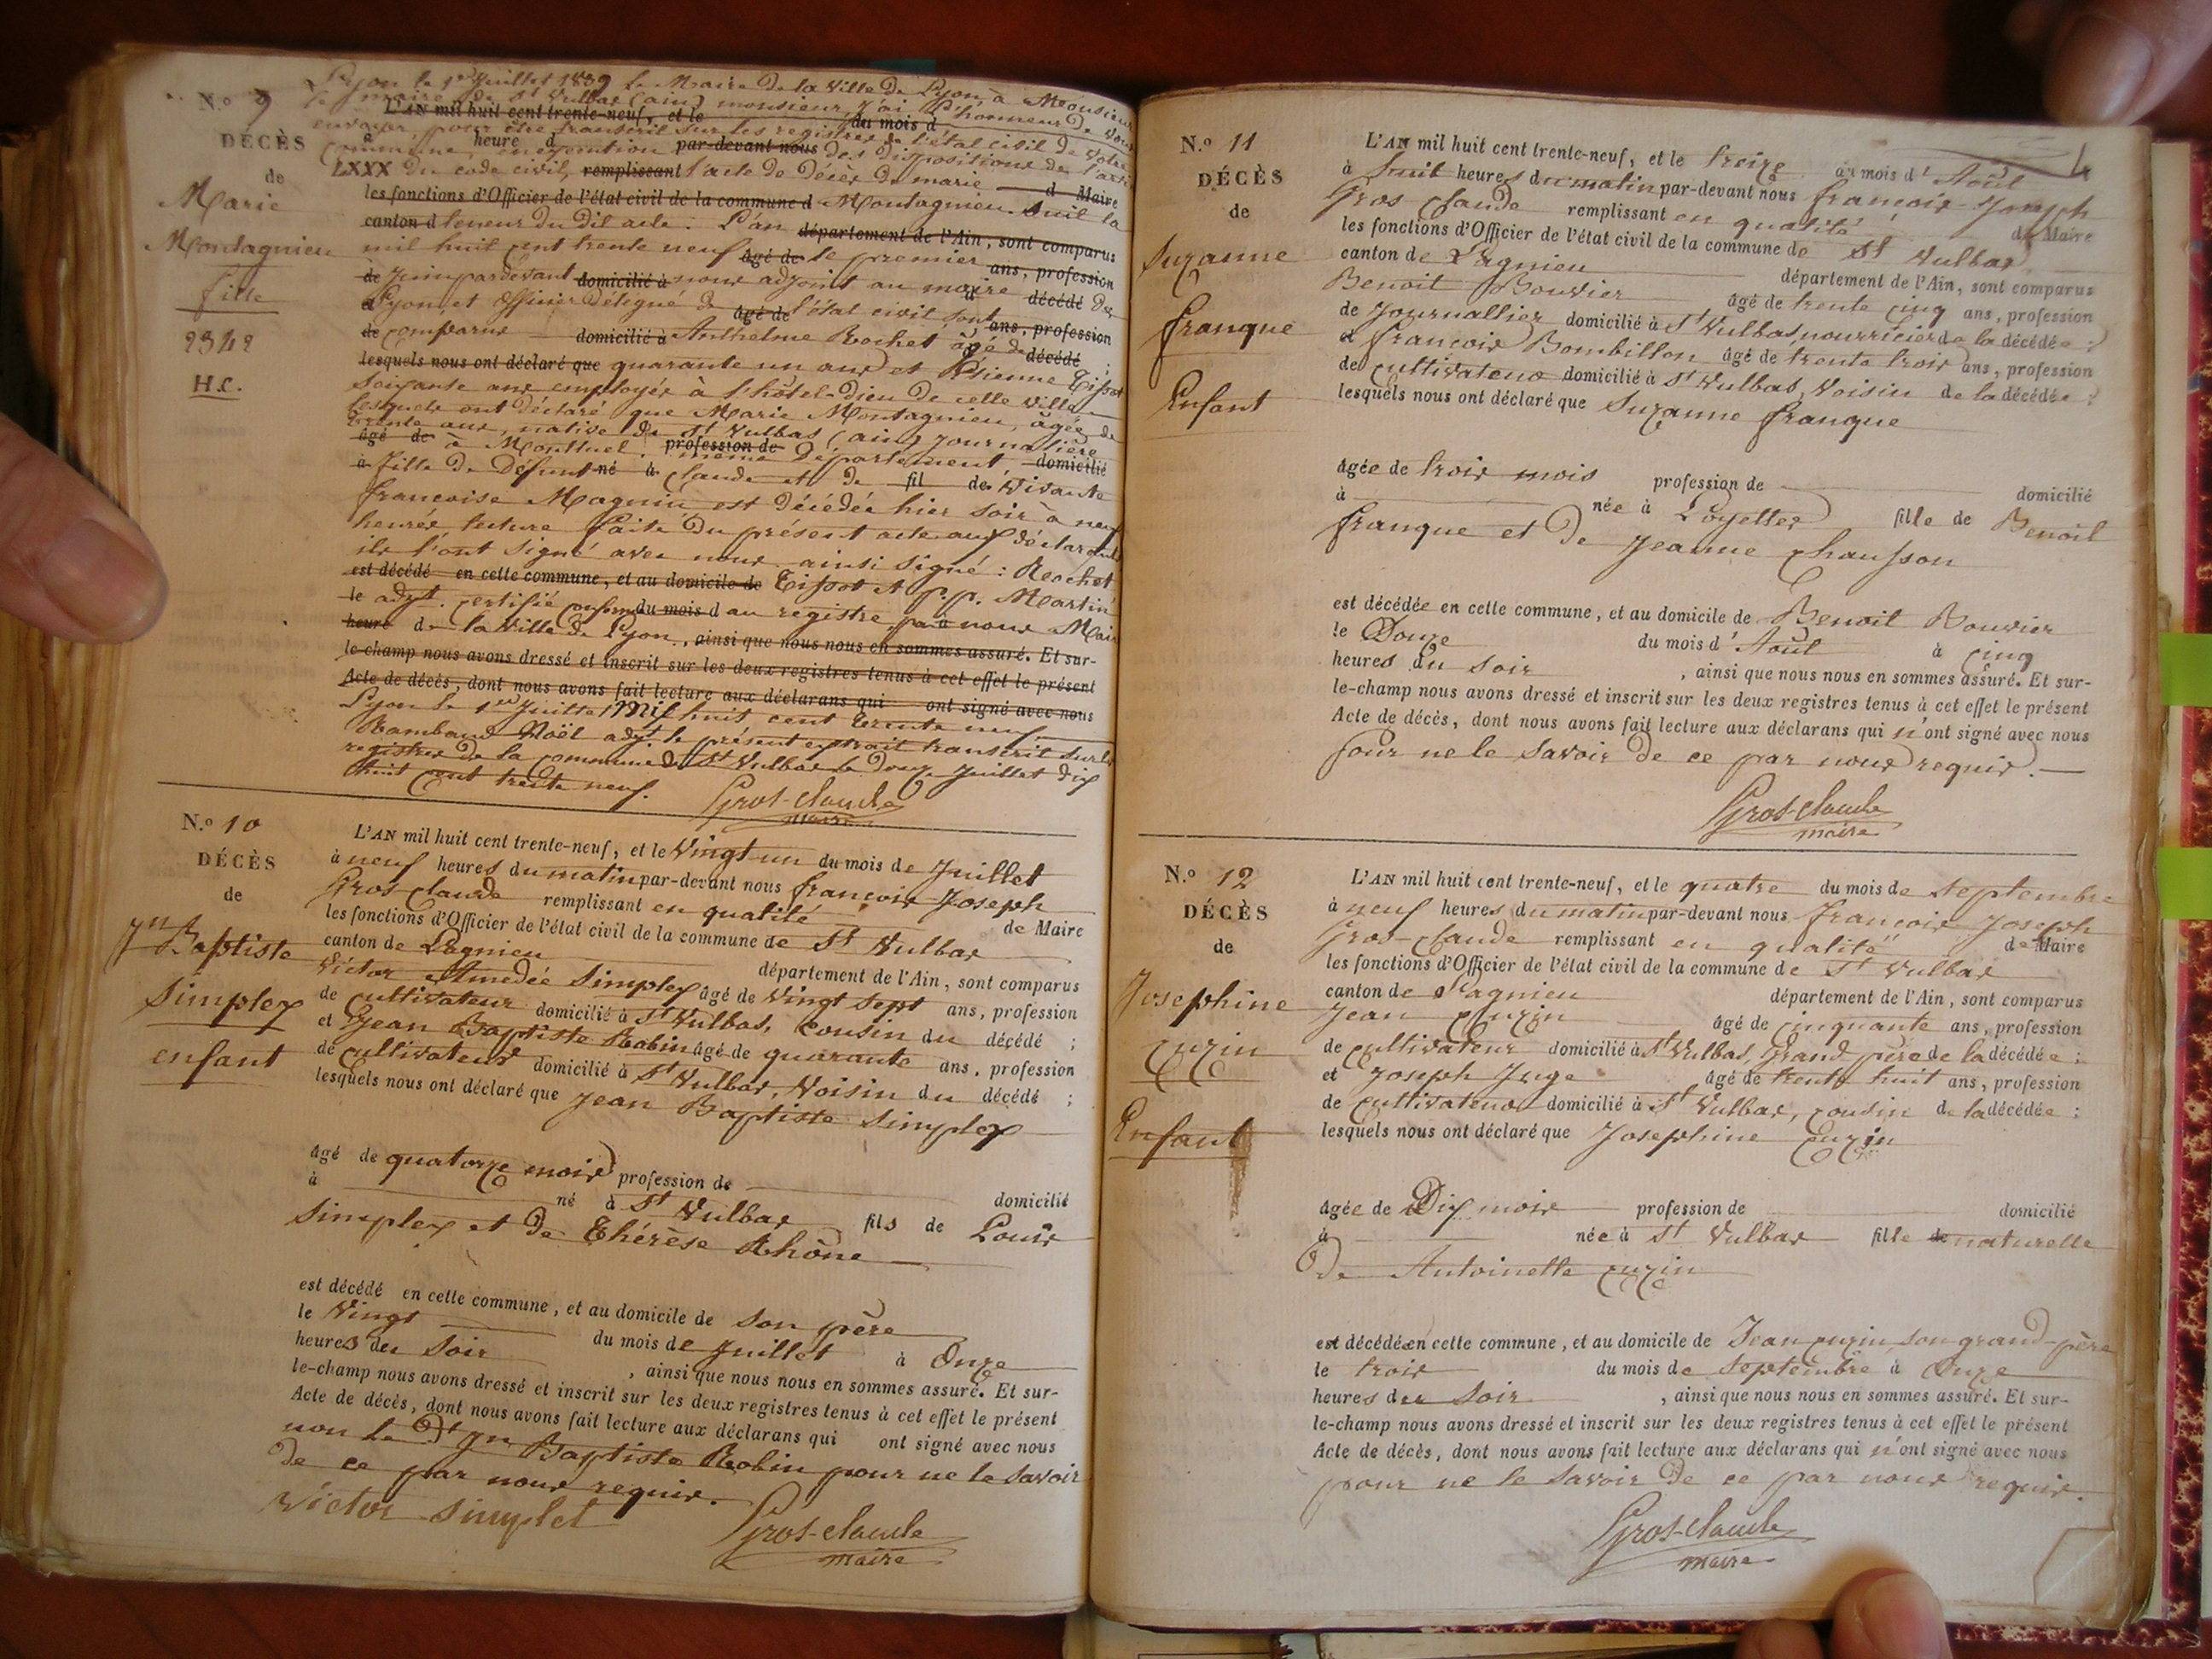 N.º 9
DÉCÈS
de
Marie
Montagnieu
fille
2342
H.C.
Lyon le 1er Juillet 1839 le Maire de la Ville de Lyon, à Monsieur
le maire de St Vulbas (ain) monsieur, J'ai l'honneur de vous
L'AN mil huit cent trente-neuf, et le du mois d
envoyer, pour être transcrit sur les registres de l'état civil de votre
à heure d par-devant nous
commune, en exécution des dispositions de l'art.
LXXX du code civil, remplissant l'acte de décès de marie d Maire
les fonctions d'Officier de l'état civil de la commune d Montagnieu suit la
canton d teneur du dit acte : L'an département de l'Ain, sont comparus
mil huit cent trente neuf âgé de le premier ans, profession
de Juin pardevant domicilié à nous adjoint au maire décédé de
Lyon, et officier délégué de âgé de l'état civil sont ans, profession
de comparus domicilié à Anthelme Rochet âgé de décédé ;
lesquels nous ont déclaré que quarante un ans et Etienne Tissot
soixante ans employés à l'hôtel-Dieu de cette ville
lesquels ont déclaré que Marie Montagnieu, âgée de
trente ans, native de St Vulbas (ain) Journalière
âgé de à Montluel, profession de même département, domicilié
à fille de Défunt né à Claude et de fil de vivante
francoise Magnin est décédée hier soir à neuf
heures lecture faite du présent acte aux déclarants
ils l'ont signé avec nous ainsi signé : Rochet
est décédé en cette commune, et au domicile de Tissot et p.p. Martin
le adjt. certifié conforme du mois d au registre par nous Maire
heure de la Ville de Lyon, ainsi que nous nous en sommes assuré. Et sur-
le-champ nous avons dressé et inscrit sur les deux registres tenus à cet effet le présent
Acte de décès, dont nous avons fait lecture aux déclarans qui ont signé avec nous
Lyon le 1er Juillet mil huit cent trente neuf
Rambaud Noël adjt. le présent extrait transcrit sur les
registres de la commune de St Vulbas le douze Juillet dix
huit cent trente neuf.
Gros-claude
maire
N.º 10
DÉCÈS
de
Jn Baptiste
Simplex
enfant
L'AN mil huit cent trente-neuf, et le Vingt-un du mois de Juillet
à neuf heures du matin par-devant nous francois Joseph
Gros-claude remplissant en qualité de Maire
les fonctions d'Officier de l'état civil de la commune de St Vulbas
canton de Lagnieu département de l'Ain, sont comparus
Victor Amedée Simplex âgé de Vingt sept ans, profession
de cultivateur domicilié à St Vulbas, cousin du décédé ;
et Jean Baptiste Robin âgé de quarante ans, profession
de cultivateur domicilié à St Vulbas, Voisin du décédé ;
lesquels nous ont déclaré que Jean Baptiste Simplex
âgé de quatorze mois profession de
à domicilié
né à St Vulbas fils de Louis
Simplex et de Thérèse Rhône
est décédé en cette commune, et au domicile de son père
le Vingt du mois de Juillet à Onze
heures du soir , ainsi que nous nous en sommes assuré. Et sur-
le-champ nous avons dressé et inscrit sur les deux registres tenus à cet effet le présent
Acte de décès, dont nous avons fait lecture aux déclarans qui ont signé avec nous
non le Dt Jn Baptiste Robin pour ne le savoir
de ce par nous requis.
Victor Simplet
Gros-claude
maire
N.º 11
DÉCÈS
de
Suzanne
franque
Enfant
L'AN mil huit cent trente-neuf, et le treize du mois d'Août
à huit heures du matin par-devant nous francois-Joseph
Gros claude remplissant en qualité de Maire
les fonctions d'Officier de l'état civil de la commune de St Vulbas
canton de Lagnieu département de l'Ain, sont comparus
Benoit Bouvier âgé de trente cinq ans, profession
de Journallier domicilié à St Vulbas, nourricier de la décédée ;
et francois Bombillon âgé de trente trois ans, profession
de cultivateur domicilié à St Vulbas, Voisin de la décédée ;
lesquels nous ont déclaré que Suzanne franque
âgée de trois mois profession de
à domicilié
née à Loyettes fille de Benoit
franque et de Jeanne Chausson
est décédée en cette commune, et au domicile de Benoit Bouvier
le Douze du mois d'Août à cinq
heures du soir , ainsi que nous nous en sommes assuré. Et sur-
le-champ nous avons dressé et inscrit sur les deux registres tenus à cet effet le présent
Acte de décès, dont nous avons fait lecture aux déclarans qui n'ont signé avec nous
pour ne le savoir de ce par nous requis.
Gros-claude
maire
N.º 12
DÉCÈS
de
Josephine
Cuzin
Enfant
L'AN mil huit cent trente-neuf, et le quatre du mois de septembre
à neuf heures du matin par-devant nous francois Joseph
Gros-claude remplissant en qualité de Maire
les fonctions d'Officier de l'état civil de la commune de St Vulbas
canton de Lagnieu département de l'Ain, sont comparus
Jean Cuzin âgé de cinquante ans, profession
de cultivateur domicilié à St Vulbas, Grand père de la décédée ;
et Joseph Juge âgé de trente huit ans, profession
de cultivateur domicilié à St Vulbas, cousin de la décédée ;
lesquels nous ont déclaré que Josephine Cuzin
âgée de Dix mois profession de domicilié
à née à St Vulbas fille de naturelle
de Antoinette Cuzin
est décédée en cette commune, et au domicile de Jean Cuzin son grand-père
le trois du mois de septembre à Onze
heures du soir , ainsi que nous nous en sommes assuré. Et sur-
le-champ nous avons dressé et inscrit sur les deux registres tenus à cet effet le présent
Acte de décès, dont nous avons fait lecture aux déclarans qui n'ont signé avec nous
pour ne le savoir de ce par nous requis.
Gros-claude
maire